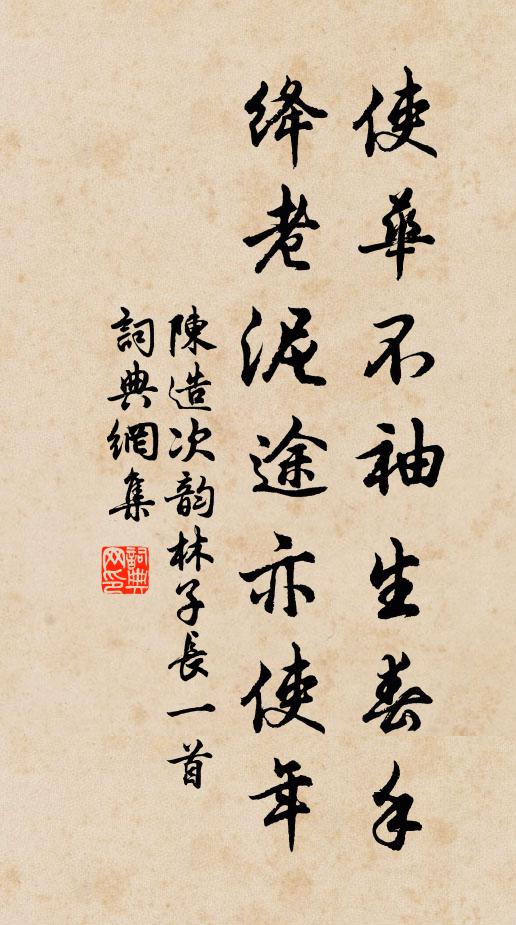 使華不袖生春手
絳老泥途亦使年
陳造次韵林子長一首
詞典網集
詞典网印